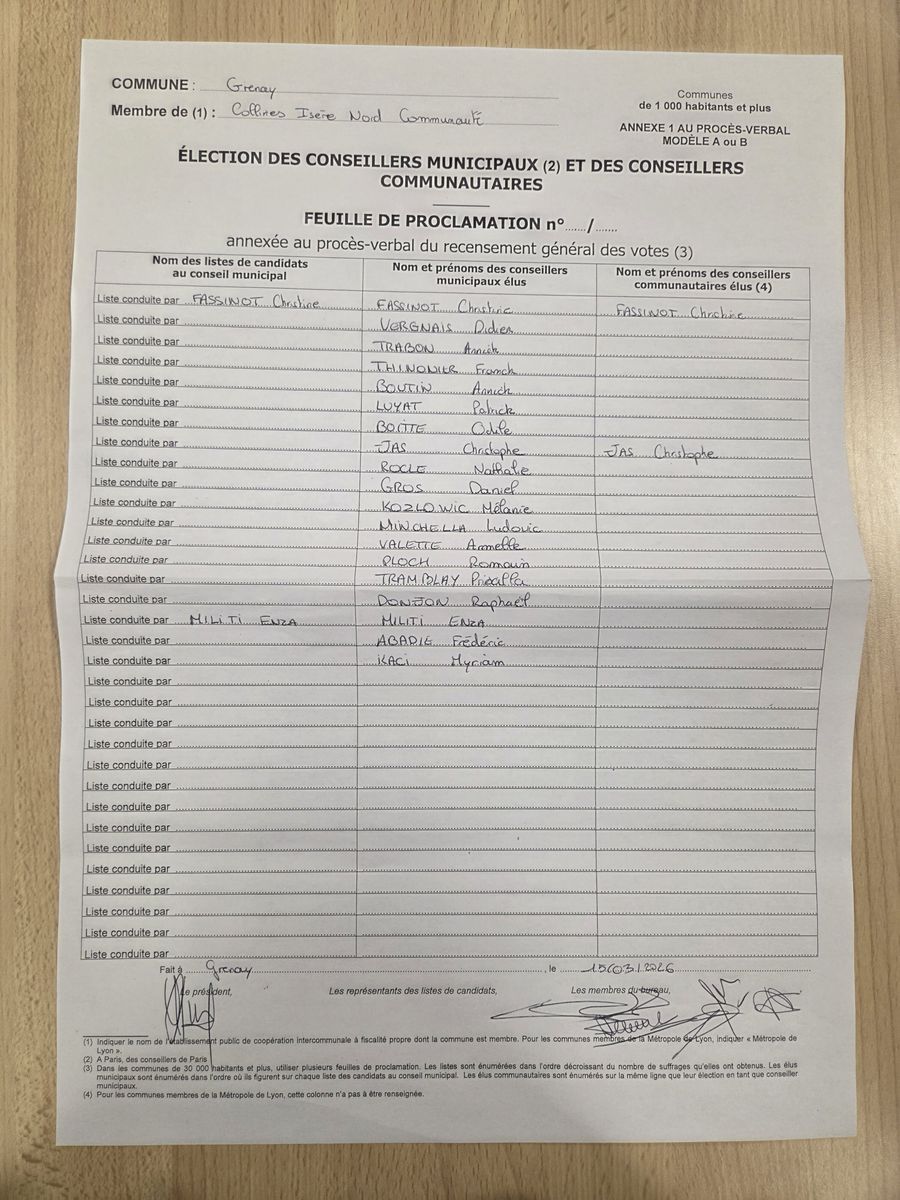 COMMUNE : Grenay
Membre de (1) : Collines Isère Nord Communauté
Communes
de 1 000 habitants et plus
ANNEXE 1 AU PROCÈS-VERBAL
MODÈLE A ou B
ÉLECTION DES CONSEILLERS MUNICIPAUX (2) ET DES CONSEILLERS
COMMUNAUTAIRES
FEUILLE DE PROCLAMATION n°....../......
annexée au procès-verbal du recensement général des votes (3)
Nom des listes de candidats
au conseil municipal
Nom et prénoms des conseillers
municipaux élus
Nom et prénoms des conseillers
communautaires élus (4)
Liste conduite par FASSINOT Christine FASSINOT Christine FASSINOT Christine
Liste conduite par VERGNAIS Didier
Liste conduite par TRABON Annick
Liste conduite par THINONIER Franck
Liste conduite par BOUTIN Annick
Liste conduite par LUYAT Patrick
Liste conduite par BOITTE Odile
Liste conduite par JAS Christophe JAS Christophe
Liste conduite par ROCLE Nathalie
Liste conduite par GROS Daniel
Liste conduite par KOZLOWIC Mélanie
Liste conduite par MINCHELLA Ludovic
Liste conduite par VALETTE Armelle
Liste conduite par PLOCH Romain
Liste conduite par TRAMBLAY
Liste conduite par DONJON Raphaël
Liste conduite par MILITI ENZA MILITI ENZA
Liste conduite par ABADIE Frédéric
Liste conduite par KACI Myriam
Liste conduite par
Liste conduite par
Liste conduite par
Liste conduite par
Liste conduite par
Liste conduite par
Liste conduite par
Liste conduite par
Liste conduite par
Liste conduite par
Liste conduite par
Liste conduite par
Liste conduite par
Liste conduite par
Fait à Grenay, le 15/03/2026
Le président, Les représentants des listes de candidats, Les membres du bureau,
(1) Indiquer le nom de l'établissement public de coopération intercommunale à fiscalité propre dont la commune est membre. Pour les communes membres de la Métropole de Lyon, indiquer « Métropole de
Lyon ».
(2) A Paris, des conseillers de Paris
(3) Dans les communes de 30 000 habitants et plus, utiliser plusieurs feuilles de proclamation. Les listes sont énumérées dans l'ordre décroissant du nombre de suffrages qu'elles ont obtenus. Les élus
municipaux sont énumérés dans l'ordre où ils figurent sur chaque liste des candidats au conseil municipal. Les élus communautaires sont énumérés sur la même ligne que leur élection en tant que conseiller
municipaux.
(4) Pour les communes membres de la Métropole de Lyon, cette colonne n'a pas à être renseignée.